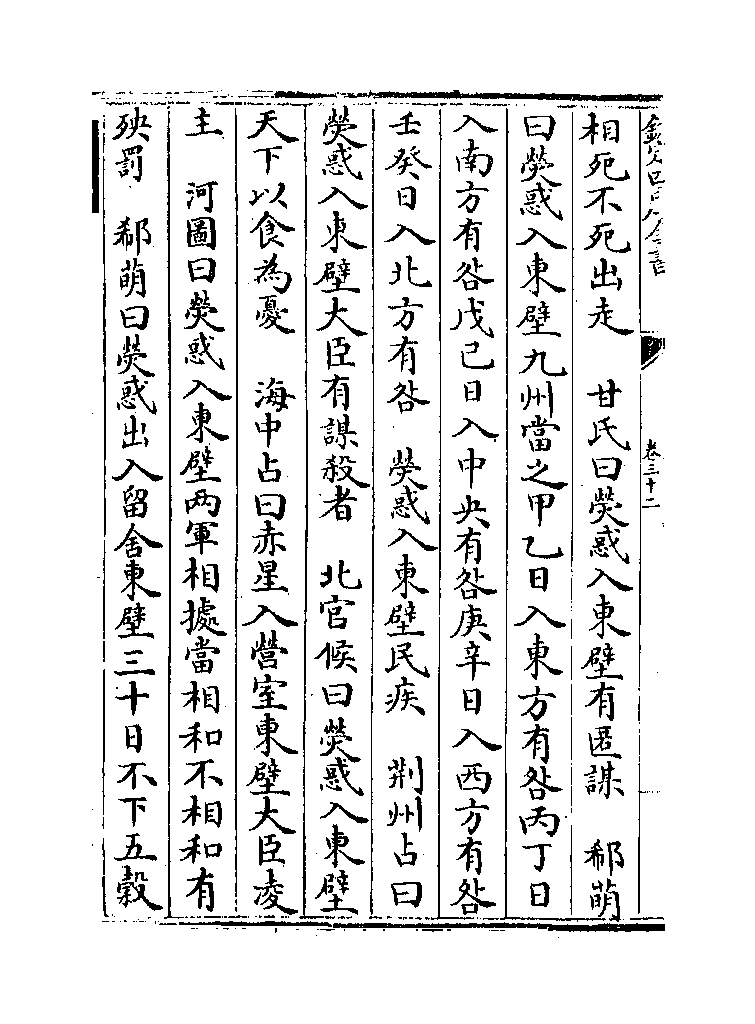 欽定四庫全書
卷三十二
相死不死出走　甘氏曰熒惑入東壁有匿謀　郗萌
曰熒惑入東壁九州當之甲乙日入東方有咎丙丁日
入南方有咎戊己日入中央有咎庚辛日入西方有咎
壬癸日入北方有咎　熒惑入東壁民疾　荆州占曰
熒惑入東壁大臣有謀殺者　北官候曰熒惑入東壁
天下以食為憂　海中占曰赤星入營室東壁大臣凌
主　河圖曰熒惑入東壁两軍相據當相和不相和有
殃罰　郗萌曰熒惑出入留舍東壁三十日不下五穀